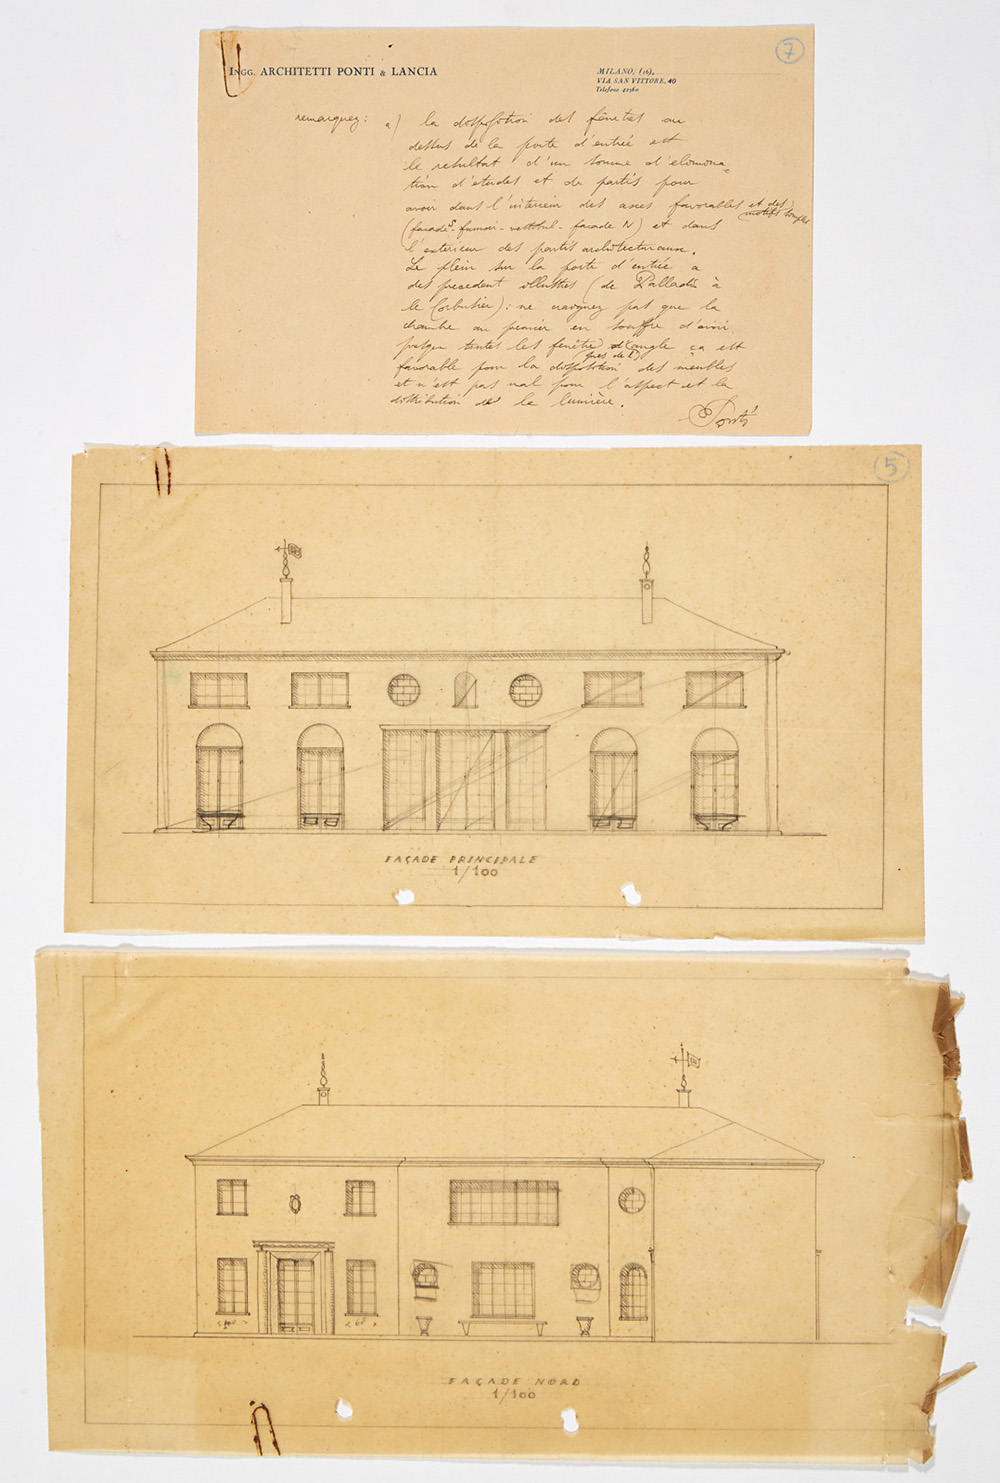 INGG. ARCHITETTI PONTI & LANCIA
MILANO, (16),
VIA SAN VITTORE, 40
Telefono
7
remarquez: a) la disposition des fênetes au
dessus de la porte d'entrée est
le resultat d'un somme d'elimina=
tion d'etudes et de partis pour
avoir dans l'interieur des axes favorables et des
motifs simples
(façade S. fumoir - vestibul - facade N) et dans
l'exterieur des partis architecturaux.
Le plein sur la porte d'entrée a
des precedent illustres (de Palladio à
le Corbusier): ne craignez pas que la
chambre au premier en souffre d'avoir
presque toutes les fenêtre d'angle ça est
(pres de l')
favorable pour la disposition des meubles
et n'est pas mal pour l'aspect et la
distribution de la lumière.
Ponti
5
FAÇADE PRINCIPALE
1/100
FAÇADE NORD
1/100